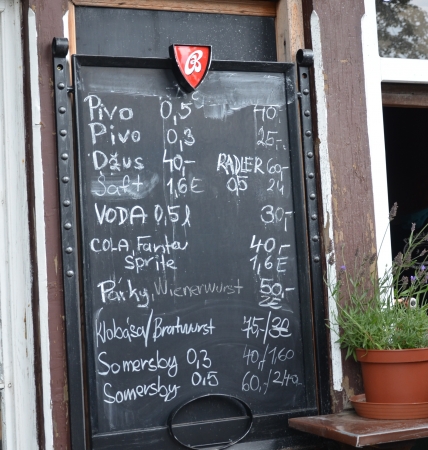 B
Pivo 0,5 40,-
Pivo 0,3 25,-
Džus 40,- RADLER 60,-
Saft 1,6 E 0,5
VODA 0,5 l 30,-
COLA, Fanta 40,-
Sprite 1,6 E
Párky, Wienerwurst 50,-
2E
Klobása/Bratwurst 75,-/3E
Somersby 0,3 40,/1,60
Somersby 0,5 60,/2,40